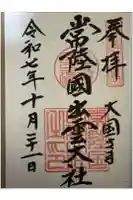 奉拝
大国さま
常陸國出雲大社
令和七年十月二十一日